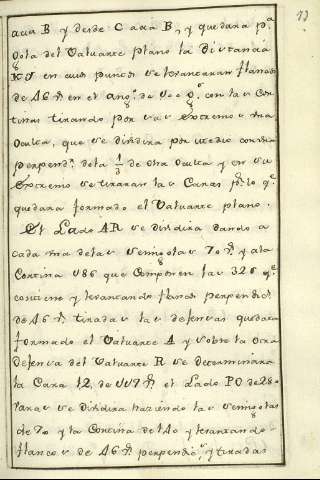 acia B y desde C acia B, y quedara p.ª
gola del Valuarte plano la distancia
en cuios puntos se levantaran flancos
de 46 p.s en el ang.º de con las Cor
tinas tirando por sus extremos una
oculta, que se dividira por medio con una
perpend.r de la 1/3 de otra oculta y en su
extremo se tiraran las Caras p.r lo q.e
quedara formado el Valuarte plano.
El Lado AR se dividira dando a
cada una de las semigolas 70 p.s y a la
Cortina 186 que componen las 326 q.e
contiene y levantando flancos perpendic.s
de 46 p.s tiradas las defensas quedara
formado el Valuarte A y sobre la otra
defensa del Valuarte R se determinara
la Cara 12, de p.s el Lado PO de 28
varas se dividira haziendo las semigolas
de 70 y la Cortina de 140 y levantando
flancos de 46 p.s perpendic.s y tiradas